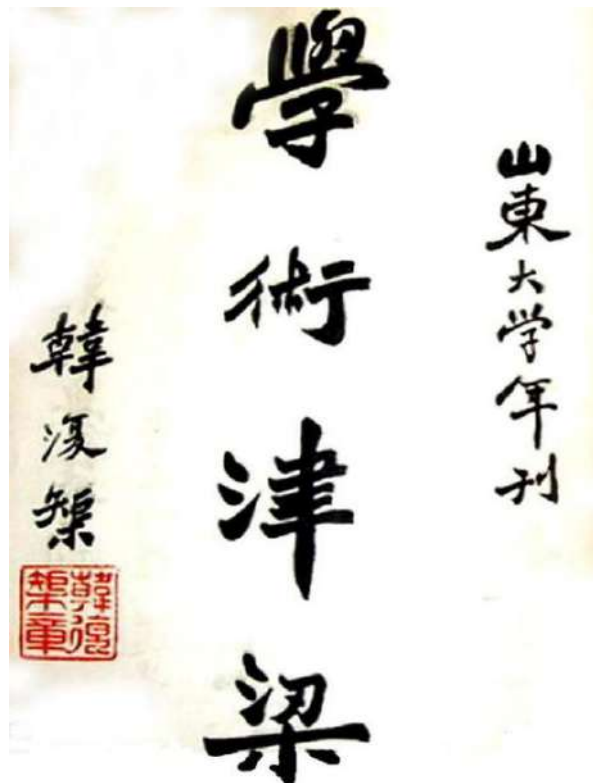 山東大学年刊
學術津梁
韓復榘
韓復榘章